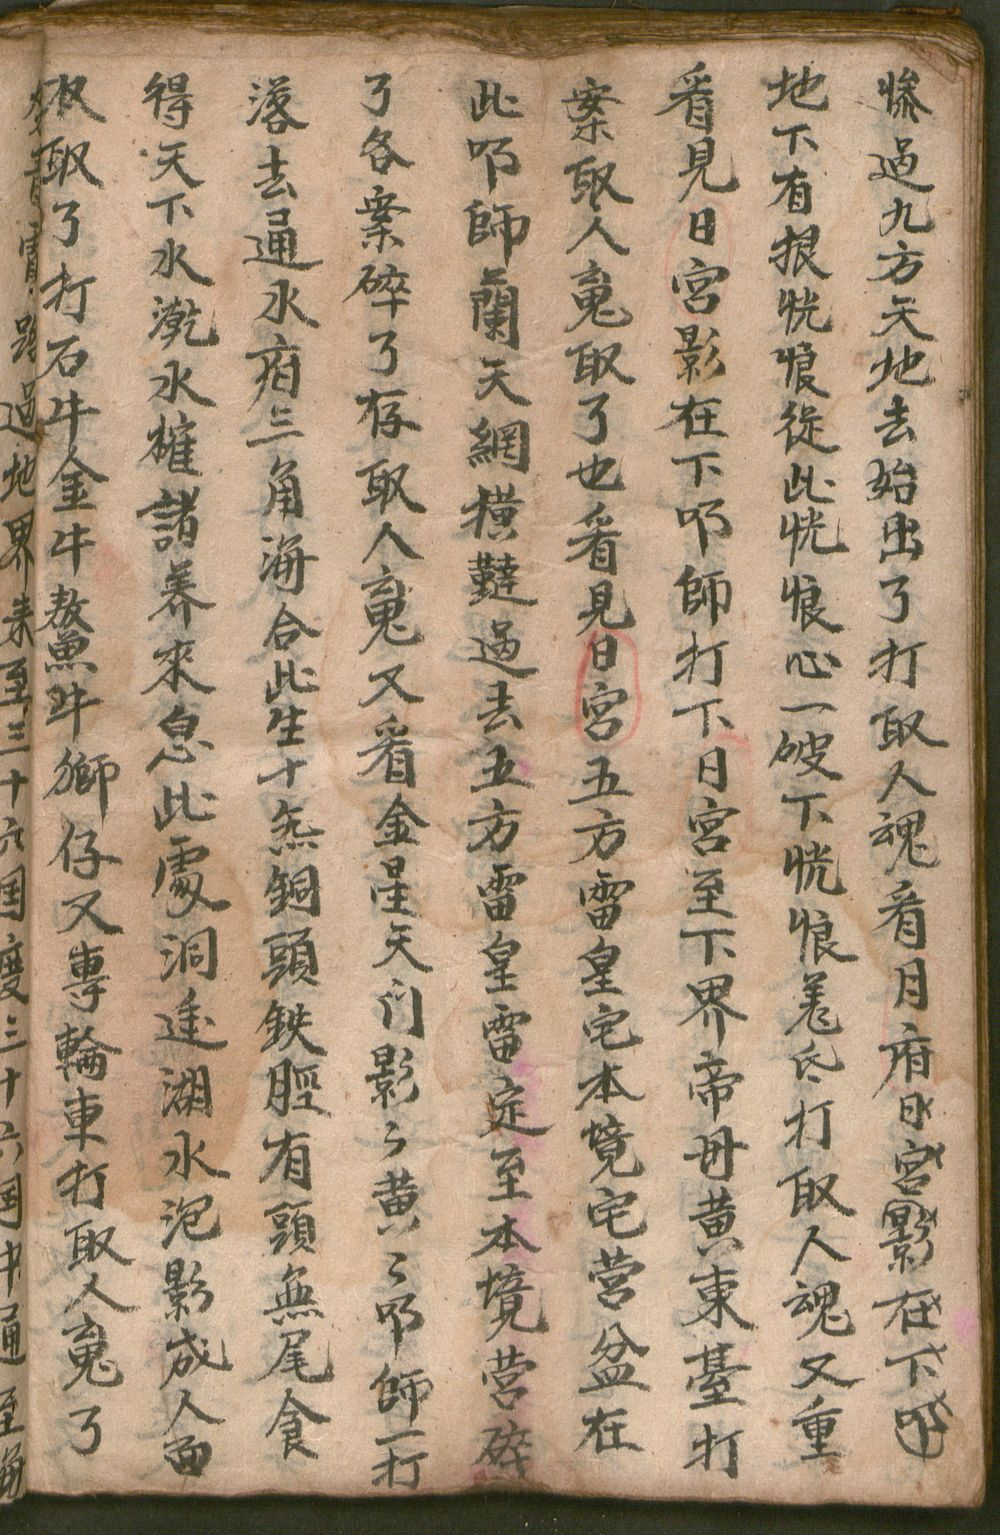 慘過九方天地去始出了打取人魂看月府日宮影在下吅
地下有捤恍悢從此恍悢心一破下恍悢羗氏打取人魂又重
看見日宮影在下吅師打下日宮至下界帝毌黄東臺打
案取人䰟取了也看見日宮五方雷皇宅本境宅营盆在
此吅師蘭天網横韃過去五方雷皇雷定至本境营碎
了各案碎了存取人䰟又看金星天门影々黄々吅師一打
落去通水府三角海合此生十炁銅頭鉄脛有頭無尾食
得天下水乾水㩁諸养來息此處洞逢湖水泡影成人面
収取了打石牛金牛𩼈牛獅仔又專輪車打取人䰟了
過地界来至三十六国度三十六国中通至海